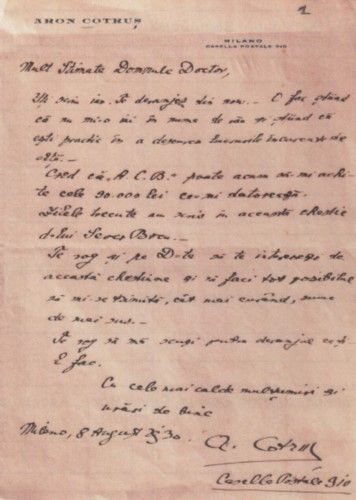 1
ARON COTRUȘ
MILANO
CASELLA POSTALE 310
Mult Stimate Domnule Doctor,
Vă scriu iar. Te deranjez din nou. — O fac știind
că nu mi-o iei în nume de rău și știind că
ești practic în a descurca lucrurile încurcate
Cred că A.C.B. poate acum să-mi achi-
te cele 30.000 lei ce-mi datorează.
Zilele trecute am scris în această chestie
d-lui Sever Bocu. —
Te rog și pe D-ta să te interesezi de
această chestiune și să faci tot posibilul
să mi se trimită, cât mai curând, suma
de mai sus. —
Te rog să mă scuzi pentru deranjul ce ți-
l fac.
Cu cele mai calde mulțumiri și
urări de bine
Milano, 8 August 1930. A. Cotruș
Casella Postale 310